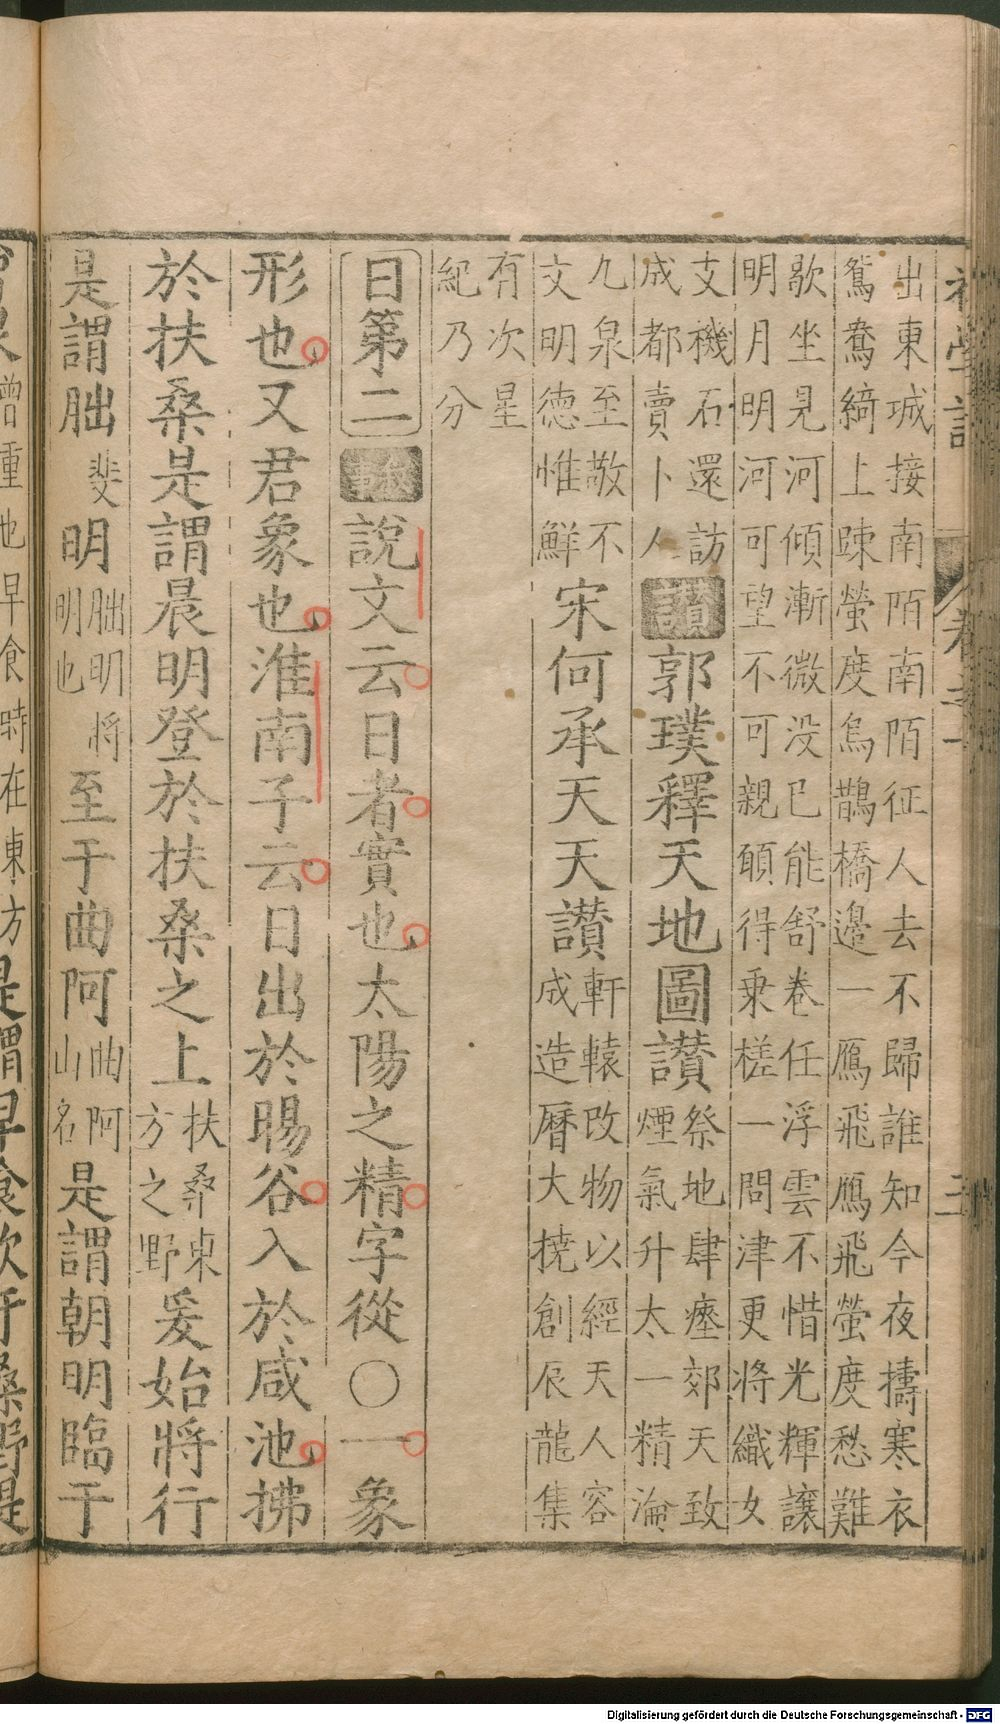 出東城接南陌南陌征人去不歸誰知今夜擣寒衣
鴛鴦綺上踈螢度烏鵲橋邊一鴈飛鴈飛螢度愁難
歇坐見河傾漸微没已能舒卷任浮雲不惜光輝讓
明月明河可望不可親願得乗槎一問津更將織女
支機石還訪
成都賣卜人
讃郭璞釋天地圖讃
祭地肆瘞郊天致
煙氣升太一精淪
九泉至敬不
文明德惟鮮
宋何承天天讃
軒轅改物以經天人容
成造曆大撓創辰龍集
有次星
紀乃分
日第二
說文云日者實也太陽之精字從〇一象
形也又君象也淮南子云日出於暘谷入於咸池拂
於扶桑是謂晨明登於扶桑之上
扶桑東
方之野
爰始將行
是謂朏
斐
明
朏明將
明也
至于曲阿
曲阿
山名
是謂朝明臨于
曾重也早食時在東方是謂早食次于桑野是
Digitalisierung gefördert durch die Deutsche Forschungsgemeinschaft - DFG